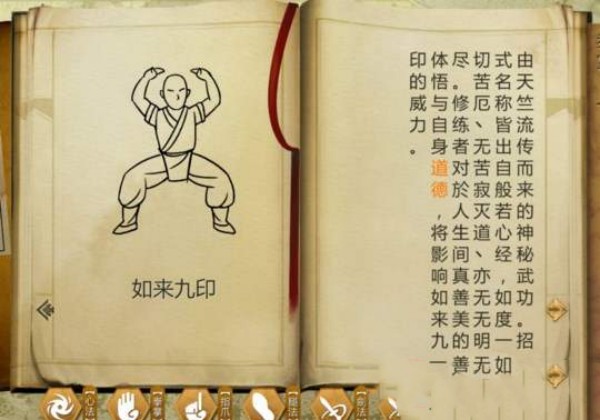 如来九印
由天竺流传而来的神秘武功。招
式名称皆出自般若心经，如度一如
切苦厄、无苦寂灭道、亦无无明无
尽。修练者对於人生间真善美的善
体悟与自身道德，将影响如来九一
印的威力。
心法
拳掌
指爪
腿法